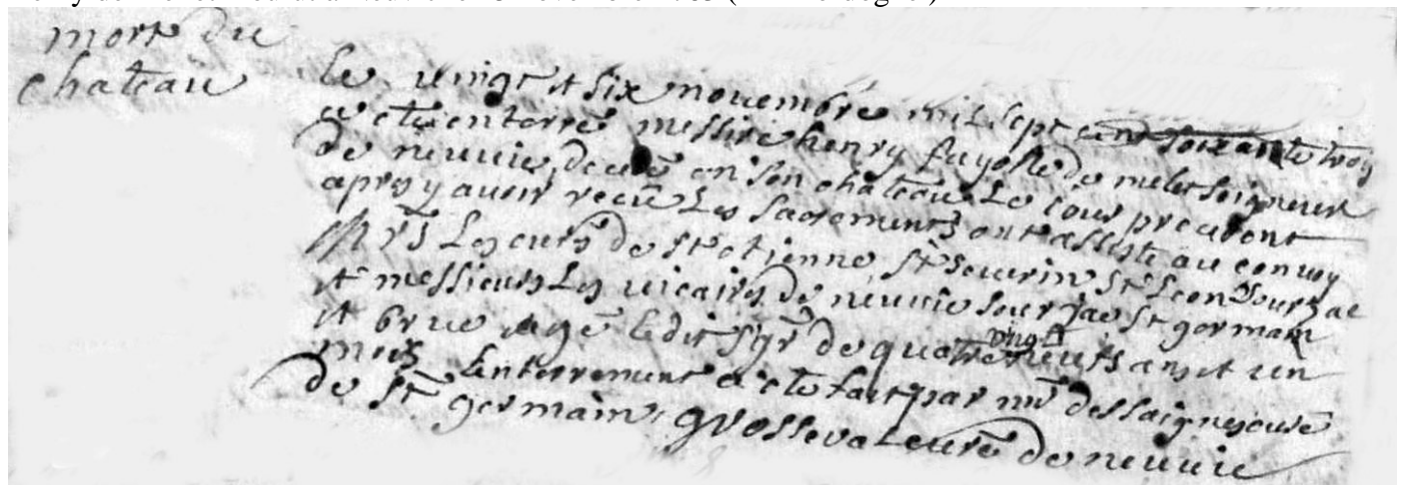 mort du
chateau
Le vingt et six novembre mil sept cent soixante troy
a ete enterré messire henry fayolle de melet seigneur
de neuvic, decedé en son chateau Le jour precedent
apres y avoir recu Les sacrements ont assisté au convoy
Mrs Les curés de st etienne, st severin st Leon Sourzac
et messieurs Les vicaires de neuvic Sourzac st germain
et brue agé ledit sgr de quatre vingt neufs ans et un
mois Lenterrement a ete fait par mr curé
de st germain, grosseval curé de neuvic